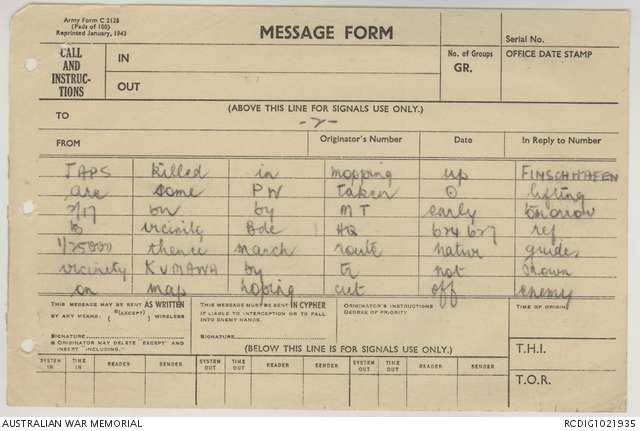 Army Form C 2128
(Pads of 100)
Reprinted January, 1943
MESSAGE FORM
Serial No.
CALL AND INSTRUC-TIONS
IN
OUT
No. of Groups
GR.
OFFICE DATE STAMP
(ABOVE THIS LINE FOR SIGNALS USE ONLY.)
TO
-2-
FROM Originator's Number Date In Reply to Number
JAPS killed in mopping up FINSCHHAFEN
are some PW taken lifting
2/17 bn by MT early tomorrow
to vicinity Bde HQ 624627 ref
1/25000 thence march route native guides
vicinity KUMAWA by tr not shown
on map hoping cut off enemy
THIS MESSAGE MAY BE SENT AS WRITTEN
BY ANY MEANS. (EXCEPT) WIRELESS
SIGNATURE
ORIGINATOR MAY DELETE "EXCEPT" AND
INSERT "INCLUDING."
THIS MESSAGE MUST BE SENT IN CYPHER
IF LIABLE TO INTERCEPTION OR TO FALL
INTO ENEMY HANDS.
SIGNATURE
ORIGINATOR'S INSTRUCTIONS
DEGREE OF PRIORITY
TIME OF ORIGIN
(BELOW THIS LINE IS FOR SIGNALS USE ONLY.)
SYSTEM IN TIME IN READER SENDER SYSTEM OUT TIME OUT READER SENDER SYSTEM OUT TIME OUT READER SENDER
T.H.I.
T.O.R.
AUSTRALIAN WAR MEMORIAL
RCDIG1021935